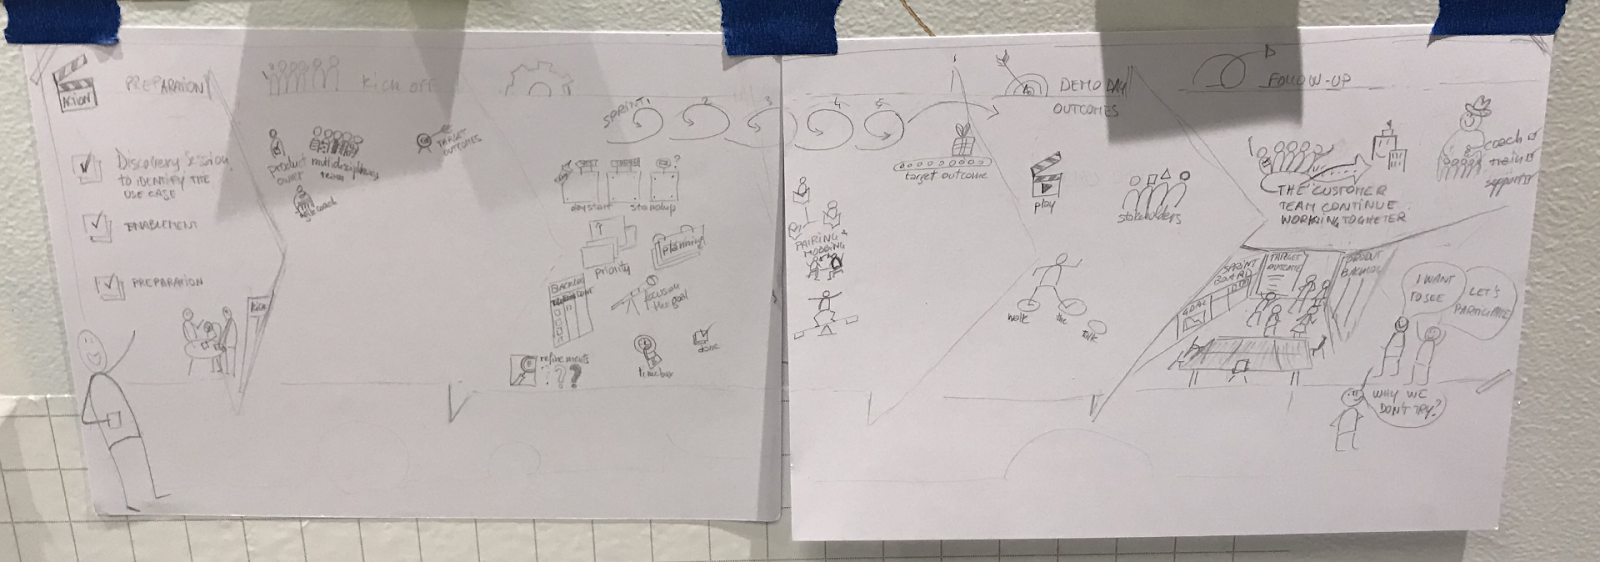 ACTION
PREPARATION
Discovery Session
to IDENTIFY THE
USE CASE
ENABLEMENT
PREPARATION
KICK OFF
product
owner
multidisciplinary
team
TARGET
OUTCOMES
SPRINT 1
2
3
4
5
daystart
standup
priority
planning
BACKLOG
focus on
the goal
refinements
???
done
target outcome
PAIRING &
MOBBING
DEMO DAY
OUTCOMES
play
stakeholders
walk
the
talk
FOLLOW-UP
THE CUSTOMER
TEAM CONTINUE
WORKING TOGHETER
coach
train
support
SPRINT
BOARD
GOAL
TARGET
OUTCOME
PRODUCT
BACKLOG
I WANT
TO SEE
LET'S
PARTICIPATE
WHY WE
DON'T TRY?